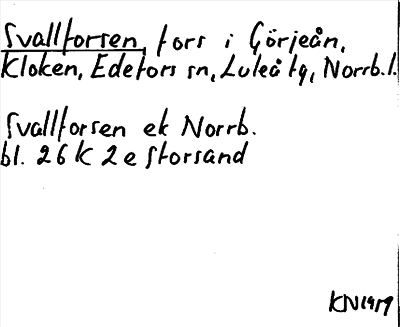 Svallforsen, fors i Görjeån,
Kloken, Edefors sn, Luleå tg, Norrb.l.
Svallforsen ek Norrb.
bl. 26 K 2 e Storsand
KN 1959